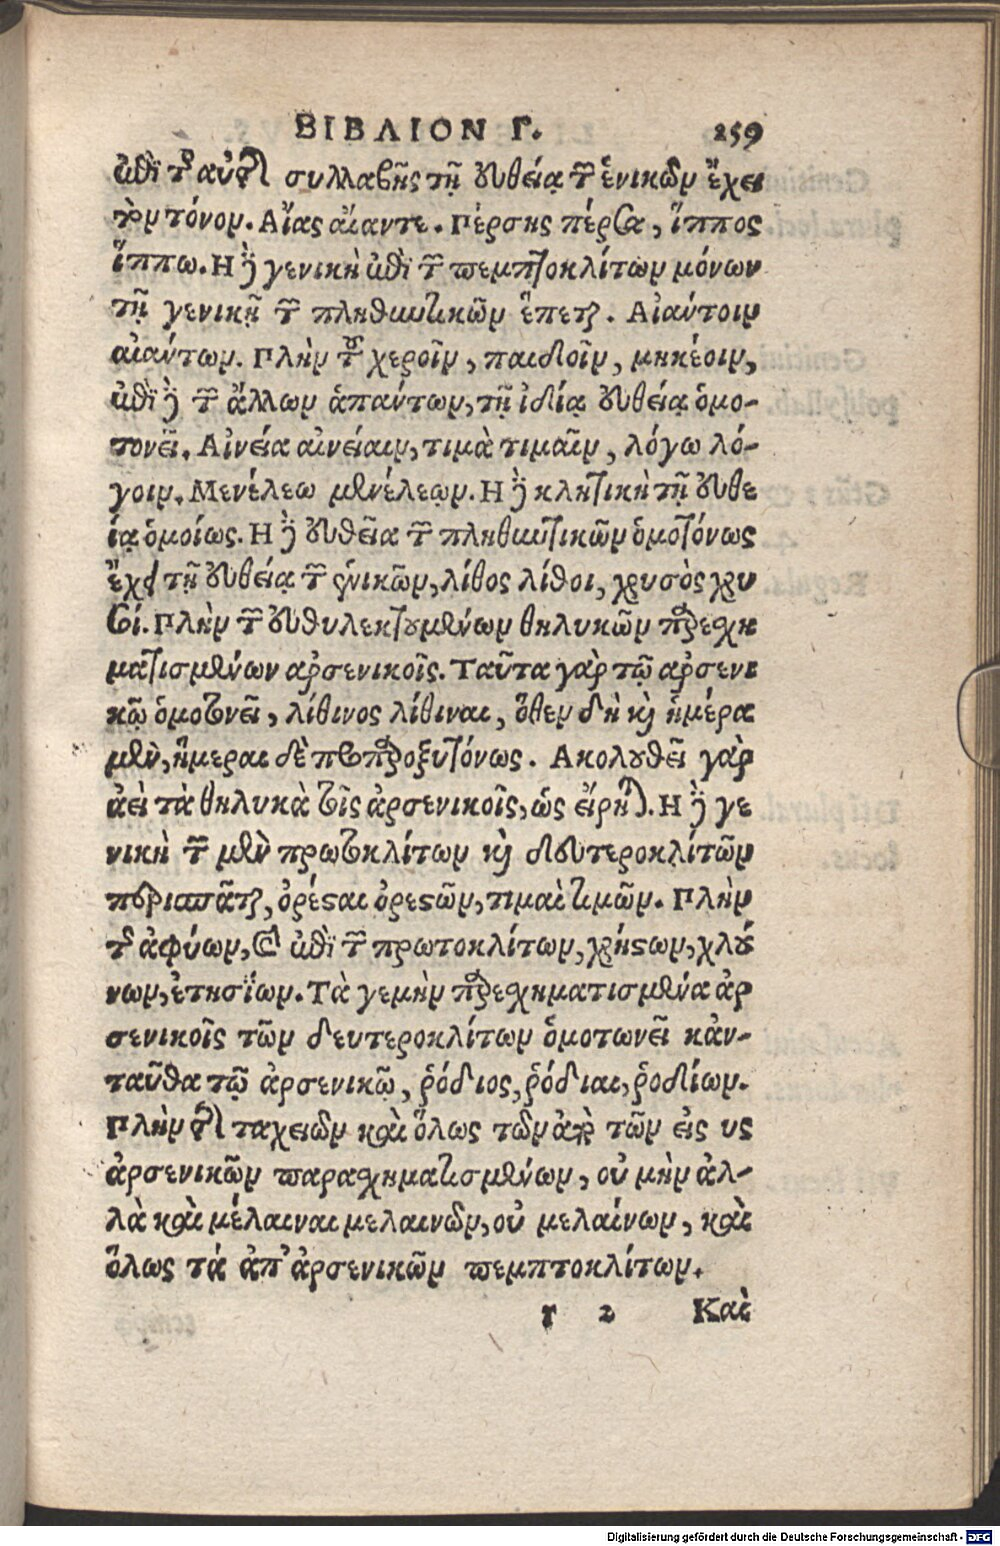 ΒΙΒΛΙΟΝ Γ. 259
ἐπὶ τῆς αὐτῆς συλλαβῆς τῇ εὐθείᾳ τῶν ἑνικῶν ἔχει
τὸν τόνον. Αἴας αἴαντε. Πέρσης πέρσα, ἵππος
ἵππω. Η δὲ γενικὴ ἐπὶ τῶν πεμπτοκλίτων μόνων
τῇ γενικῇ τῶν πληθυντικῶν ἕπεται. Αἰαντοιν
αἰάντων. Πλὴν τοῦ χεροῖν, παιδοῖν, μηκέοιν,
ἐπὶ δὲ τῶν ἄλλων ἁπάντων, τῇ ἰδίᾳ εὐθείᾳ ὁμο-
τονεῖ. Αἰνεία αἰνείαιν, τιμὰ τιμαῖν, λόγω λό-
γοιν. Μενέλεω μενέλεῳν. Η δὲ κλητικὴ τῇ εὐθε
ίᾳ ὁμοίως. Η δὲ εὐθεῖα τῶν πληθυντικῶν ὁμοτόνως
ἔχει τῇ εὐθείᾳ τῶν ἑνικῶν, λίθος λίθοι, χρυσὸς χρυ
σοί. Πλὴν τῶν εὐθυλεκτουμένων θηλυκῶν παρεχη
ματισμένων ἀρσενικοῖς. Ταῦτα γὰρ τῷ ἀρσενι
κῷ ὁμοτονεῖ, λίθινος λίθιναι, ὅθεν δὴ καὶ ἡμέρα
μὲν, ἥμεραι δὲ προπαροξυτόνως. Ακολουθεῖ γὰρ
ἀεὶ τὰ θηλυκὰ τοῖς ἀρσενικοῖς, ὡς εἴρηται. Η δὲ γε
νικὴ τῶν μὲν πρωτοκλίτων καὶ δευτεροκλίτων
περισπᾶται, ὀρέσαι ὀρεσῶν, τιμαὶ τιμῶν. Πλὴν
τοῦ ἀφύων, καὶ ἐπὶ τῶν πρωτοκλίτων, χρήστων, χλού
νων, ἐτησίων. Τὰ γεμὴν παρεχηματισμένα ἀρ
σενικοῖς τῶν δευτεροκλίτων ὁμοτωνεῖ κἀν-
ταῦθα τῷ ἀρσενικῷ, ῥόδιος, ῥόδιαι, ῥοδίων.
Πλὴν τῆς ταχειῶν καὶ ὅλως τῶν ἀπὸ τῶν εἰς υς
ἀρσενικῶν παραχηματισμένων, οὐ μὴν ἀλ-
λὰ καὶ μέλαιναι μελαινῶν, οὐ μελαίνων, καὶ
ὅλως τά ἀπ' ἀρσενικῶν πεμπτοκλίτων.
r 2 Καὶ
Digitalisierung gefördert durch die Deutsche Forschungsgemeinschaft - DFG